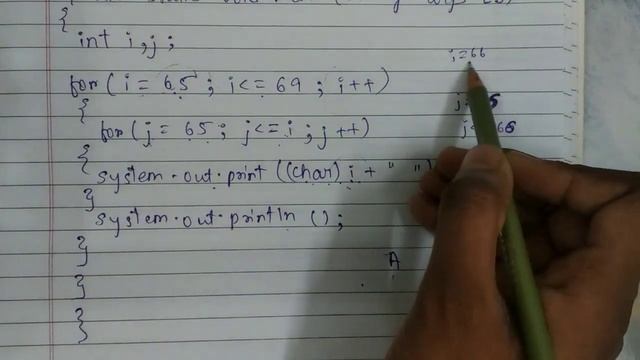 {
int i,j;
i=66
for(i=65; i<=69; i++)
{
for(j=65; j<=i; j++)
{
system.out.print((char)i+" ")
}
system.out.println();
}
A
}
}